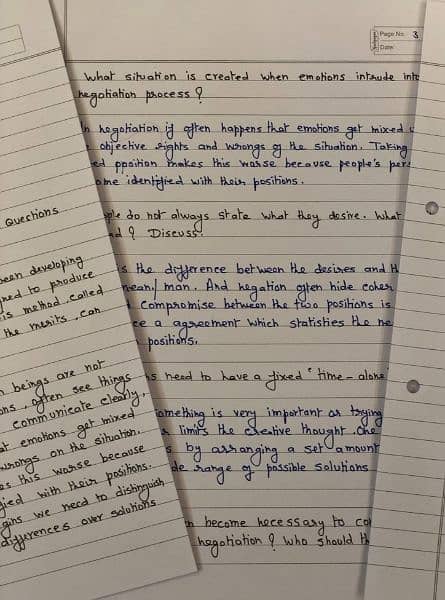 Page No. 3
Date
What situation is created when emotions intrude into
negotiation process ?
negotiation it often happens that emotions get mixed
objective rights and wrongs of the situation. Taking
position makes this worse because people's
identified with their positions.
do not always state what they desire. What
? Discuss.
the difference between the desires and
mean/ man. And negation often hide
compromise between the two positions is
a agreement which statisties the
positions.
need to have a fixed "time - alone
Something is very important as trying
limits the creative thought. One
by arranging a set amount
range of possible solutions
become necessary to
negotiation ? Who should
Questions
been developing
to produce
method, called
the merits, can
beings are not
often see things
communicate clearly,
emotions get mixed
wrongs on the situation.
this worse because
with their positions.
we need to distinguish
differences over solutions